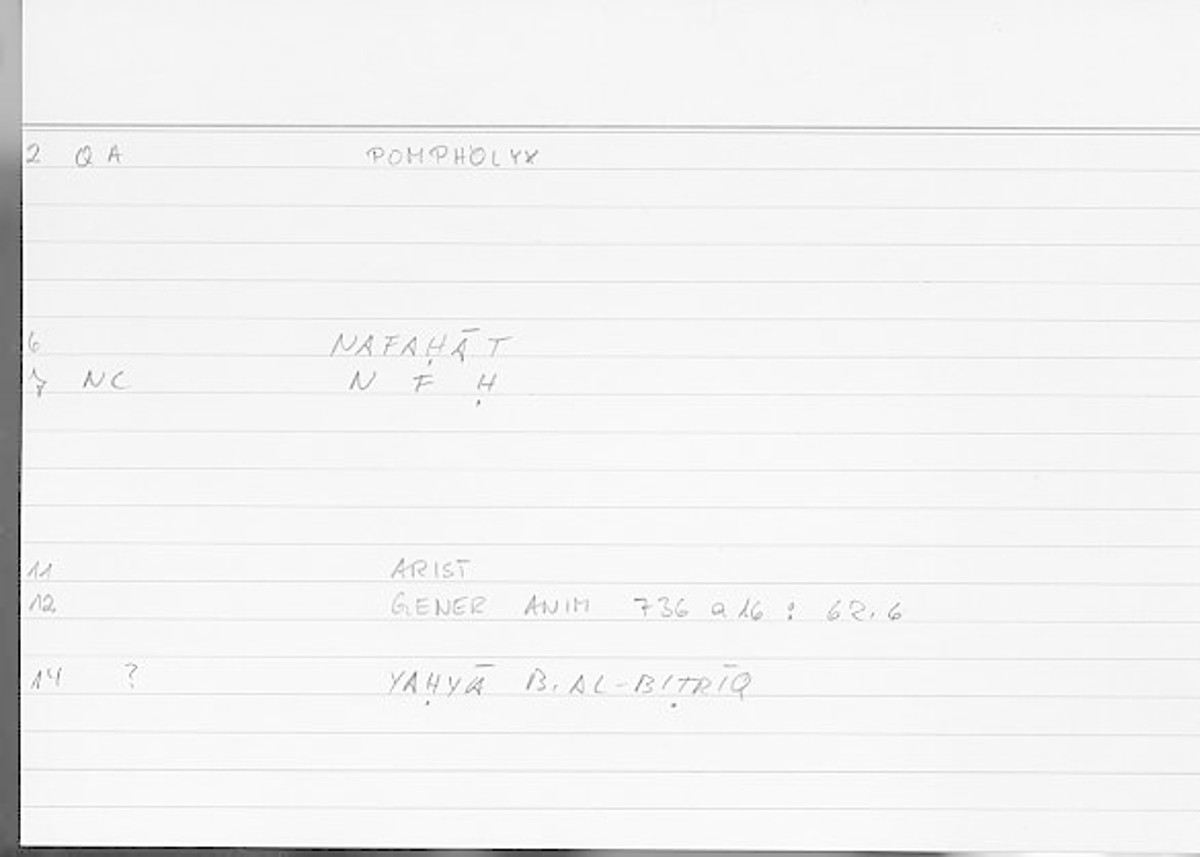 2 QA POMPHOLYX
6 NAFAḤĀT
7 NC N F Ḥ
11 ARIST
12 GENER ANIM 736 a 16 : 62.6
14 ? YAḤYĀ B. AL-BIṬRĪQ